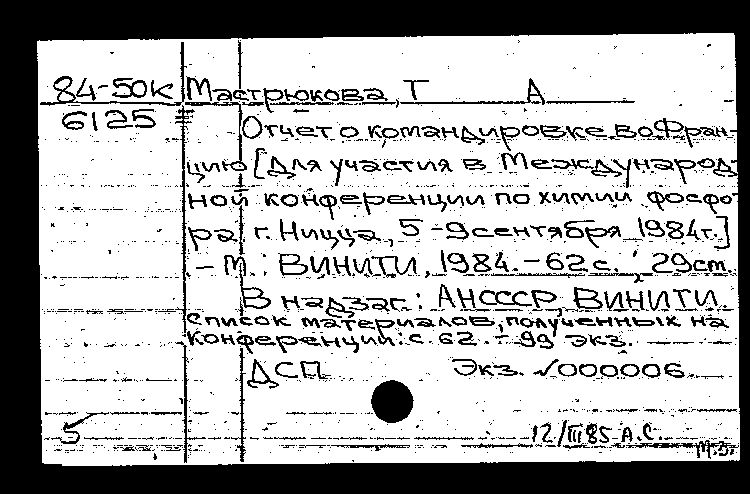 84-50к Мастрюкова, Т А
6125 Отчет о командировке во Фран-
цию [Для участия в Международ-
ной конференции по химии фосфо-
ра г. Ницца, 5-9 сентября 1984г.]
.- М.: ВИНИТИ, 1984. - 62 с. ; 29 см.
В надзаг.: АНСССР, ВИНИТИ.
Список материалов, полученных на
конференции: с 62. - 99 экз.
ДСП Экз. √000006.
5 12/III 85 А.С.